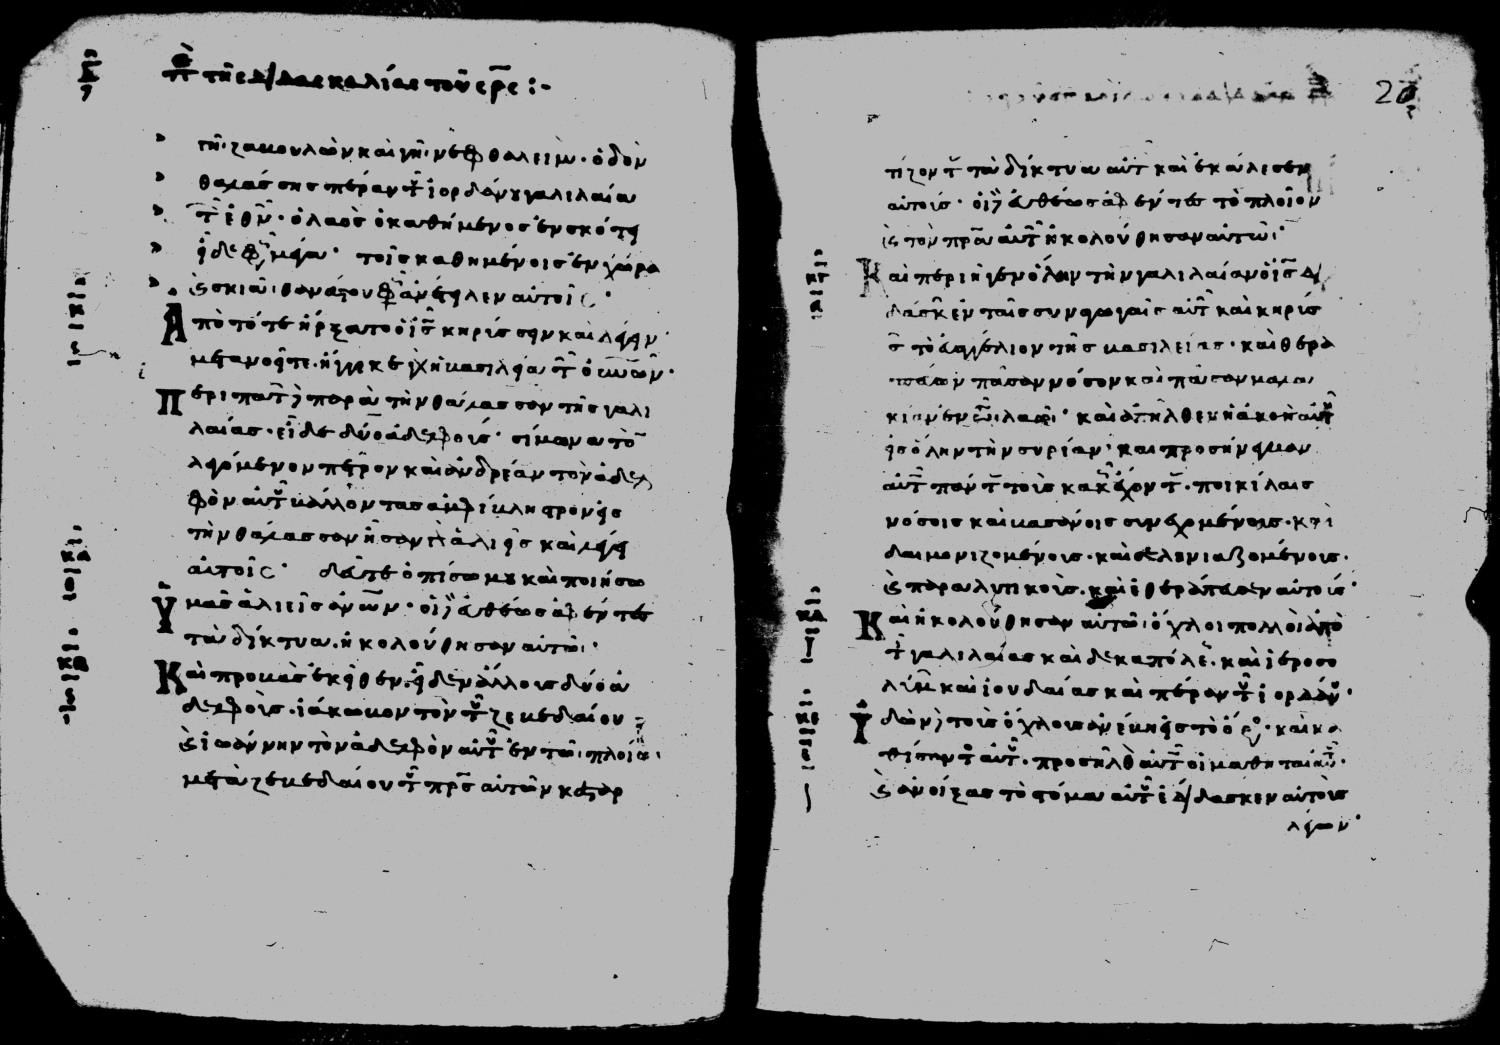 περὶ τῆς διδασκαλίας τοῦ σρς :-
γῆ ζαβουλὼν καὶ γῆ νεφθαλείμ · ὁδὸν
θαλάσσης πέραν τοῦ ἰορδάνου γαλιλαία
τῶν ἐθνῶν · ὁ λαὸς ὁ καθήμενος ἐν σκότει
εἶδε φῶς μέγα · τοῖς καθημένοις ἐν χώρα
καὶ σκιᾶ θανάτου φῶς ἀνέτειλεν αὐτοῖς ·
Ἀπὸ τότε ἤρξατο ὁ ις κηρύσσειν καὶ λέγειν ·
μετανοεῖτε · ἤγγικε γὰρ ἡ βασιλεία τῶν οὐνῶν ·
Περιπατῶν δὲ παρὰ τὴν θάλασσαν τῆς γαλι
λαίας · εἶδε δύο ἀδελφοὺς · σίμωνα τὸν
λεγόμενον πέτρον καὶ ἀνδρέαν τὸν ἀδελ
φὸν αὐτοῦ βάλλοντας ἀμφίβληστρον εἰς
τὴν θάλασσαν ἦσαν γὰρ ἁλιεῖς καὶ λέγει
αὐτοῖς · δεῦτε ὀπίσω μου καὶ ποιήσω
ὑμᾶς ἁλιεῖς ἀνων · οἱ δὲ εὐθέως ἀφέντες
τὰ δίκτυα · ἠκολούθησαν αὐτῶ ·
Καὶ προβὰς ἐκεῖθεν · εἶδεν ἄλλους δύο ἀ
δελφοὺς · ἰάκωβον τὸν τοῦ ζεβεδαίου
καὶ ἰωάννην τὸν ἀδελφὸν αὐτοῦ ἐν τῶ πλοίω ·
μετὰ ζεβεδαίου τοῦ πρς αὐτῶν καταρ
20
τίζοντας τὰ δίκτυα αὐτῶν καὶ ἐκάλεσεν
αὐτούς · οἱ δὲ εὐθέως ἀφέντες τὸ πλοῖον
καὶ τὸν πρα αὐτῶν ἠκολούθησαν αὐτῶ ·
Καὶ περιῆγεν ὅλην τὴν γαλιλαίαν ὁ ις δι
δάσκων ἐν ταῖς συναγωγαῖς αὐτῶν καὶ κηρύσ
σων τὸ εὐαγγέλιον τῆς βασιλείας · καὶ θερα
πεύων πᾶσαν νόσον καὶ πᾶσαν μαλα
κίαν ἐν τῶ λαῶ · καὶ ἀπῆλθεν ἡ ἀκοὴ αὐτοῦ
εἰς ὅλην τὴν συρίαν · καὶ προσήνεγκαν
αὐτῶ πάντας τοὺς κακῶς ἔχοντας · ποικίλαις
νόσοις καὶ βασάνοις συνεχομένους · καὶ
δαιμονιζομένους · καὶ σεληνιαζομένους ·
καὶ παραλυτικοὺς · καὶ ἐθεράπευσεν αὐτούς ·
Καὶ ἠκολούθησαν αὐτῶ ὄχλοι πολλοὶ ἀπὸ
τῆς γαλιλαίας καὶ δεκαπόλεως · καὶ ἱεροσο
λύμων καὶ ἰουδαίας καὶ πέραν τοῦ ἰορδάνου ·
Ἰδὼν δὲ τοὺς ὄχλους ἀνέβη εἰς τὸ ὄρος · καὶ κα
θίσαντος αὐτοῦ · προσῆλθον αὐτῶ οἱ μαθηταὶ αὐτοῦ ·
καὶ ἀνοίξας τὸ στόμα αὐτοῦ ἐδίδασκεν αὐτοὺς
λέγων ·